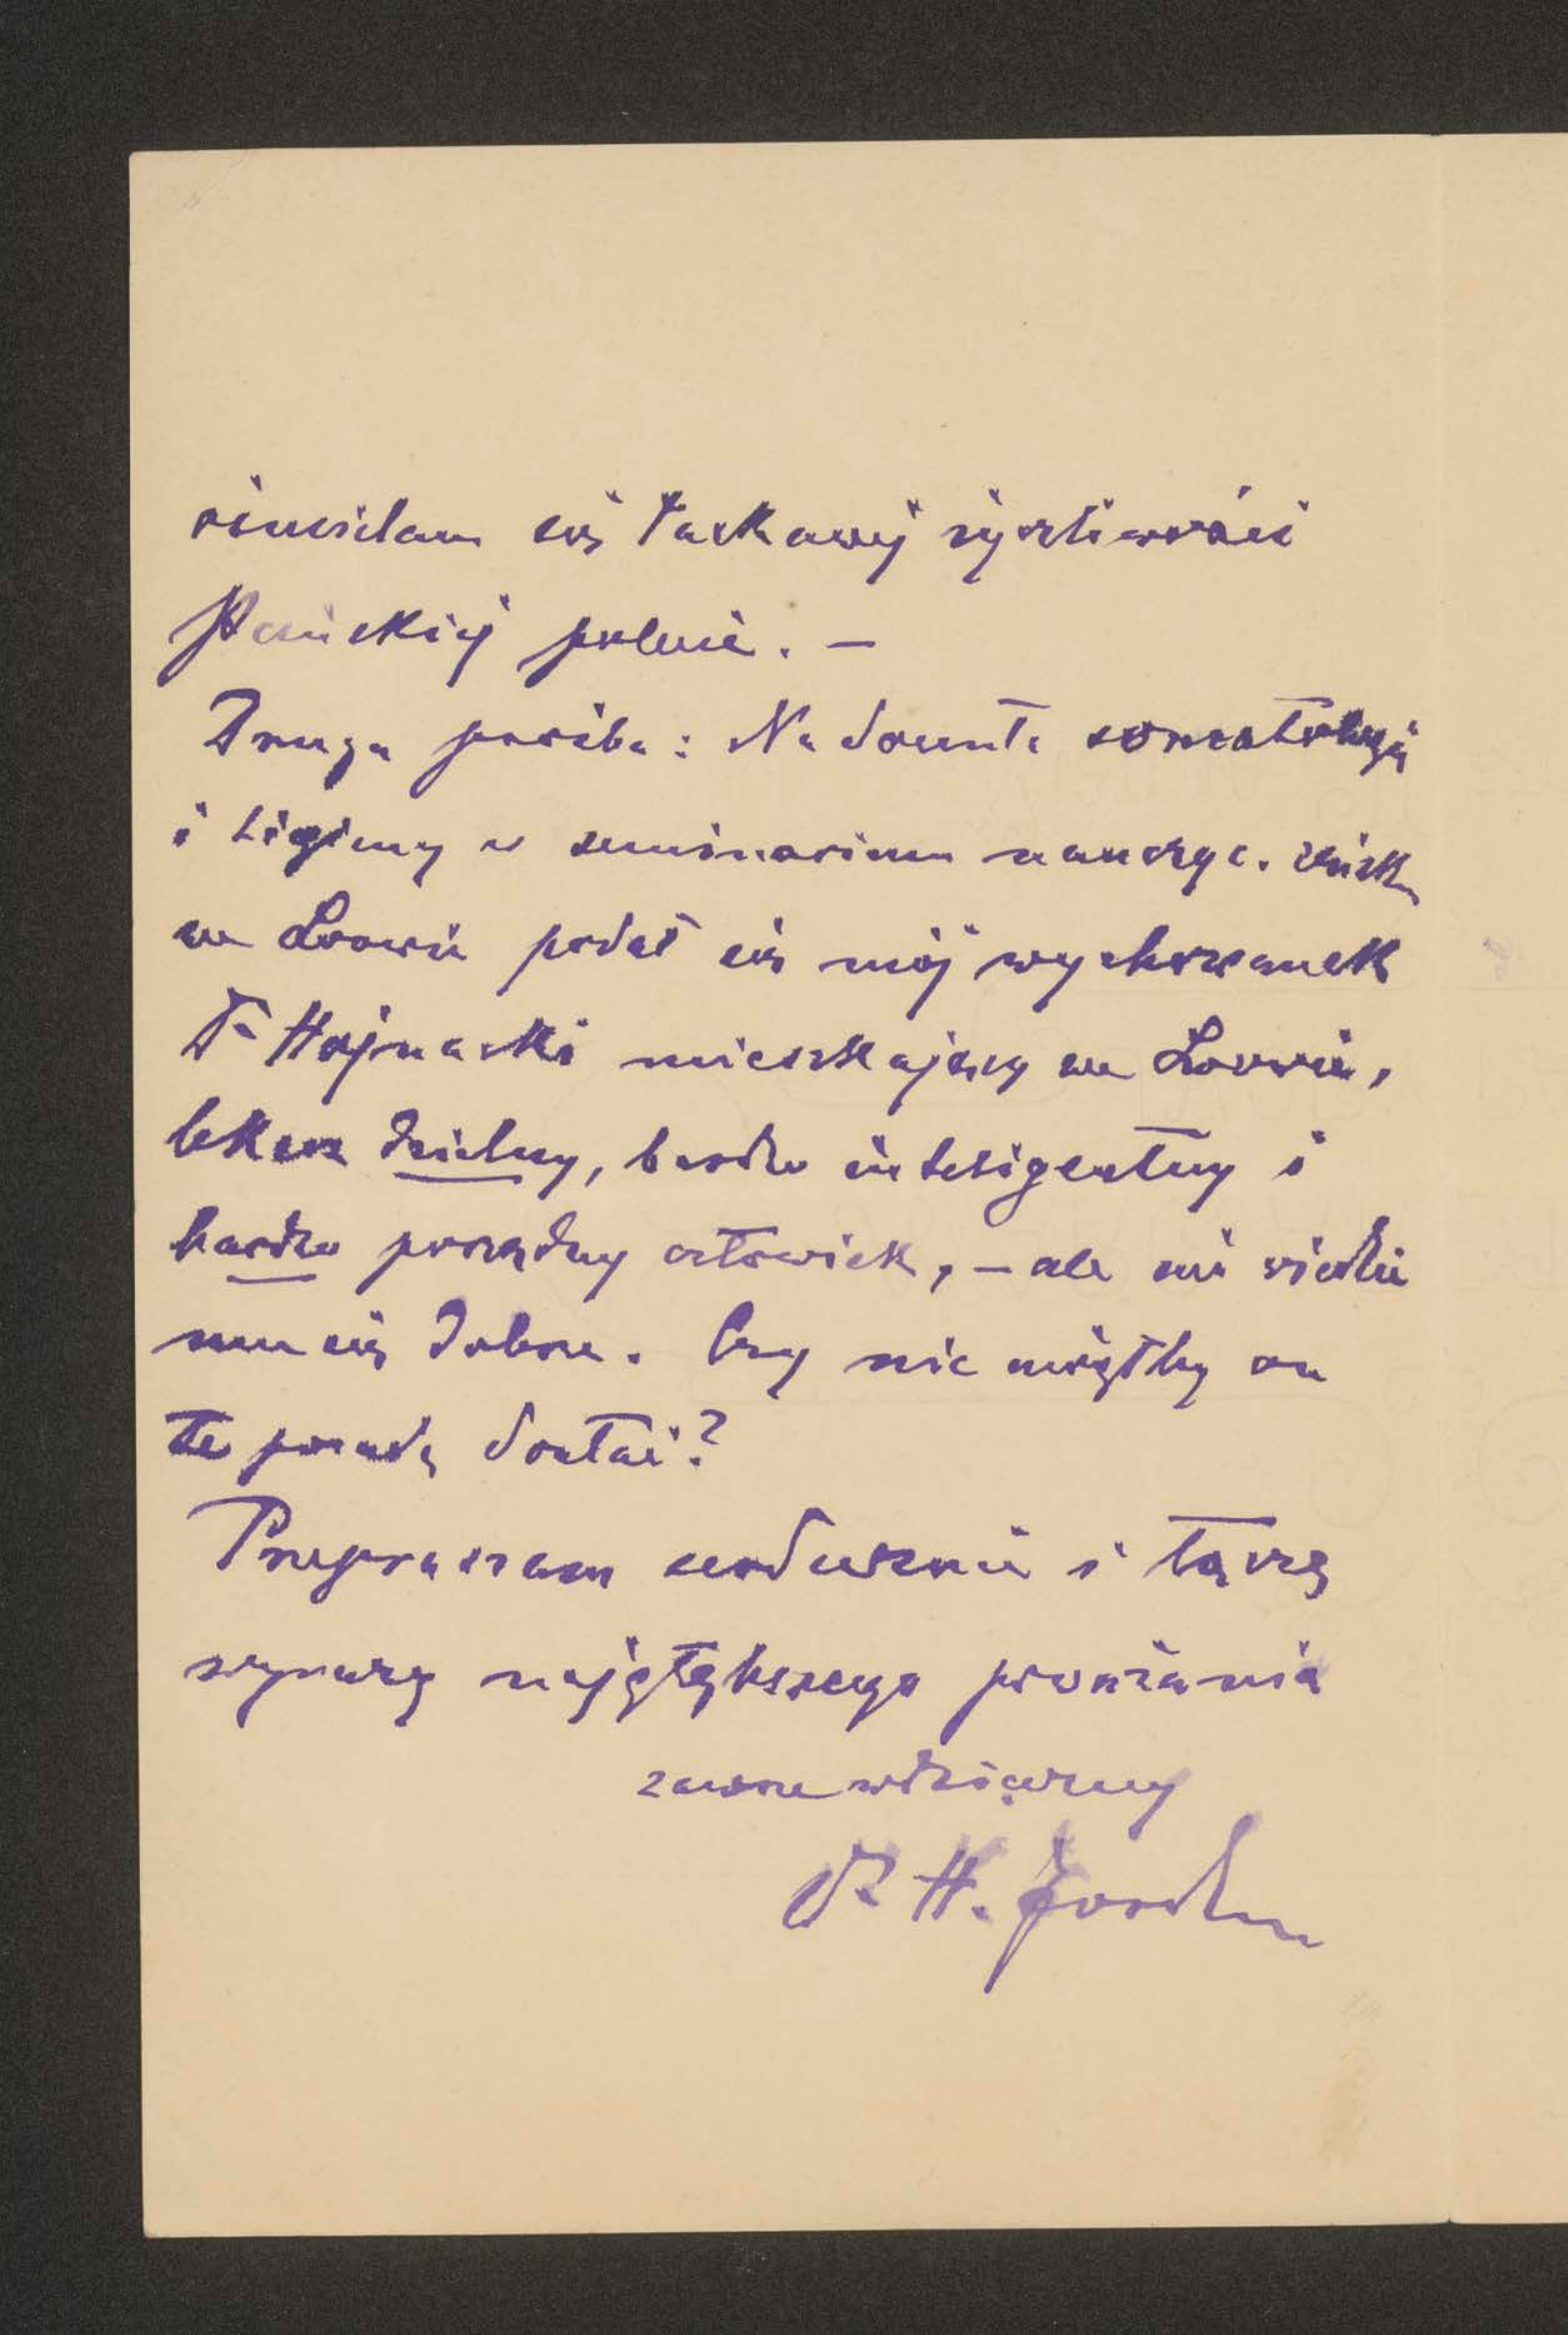 ośmielam się łaskawej życzliwości
Pańskiej polecić. —
Druga prośba: Na docenta somatologji
i higieny w seminarium nauczyc. żeńsk.
we Lwowie podał się mój wychowanek
Dr Hojnacki mieszkający we Lwowie,
lekarz dzielny, bardzo inteligentny i
bardzo porządny człowiek, — ale nie wiedzie
mu się dobrze. Czy nie mógłby on
te posadę dostać?
Przepraszam serdecznie i łączę
wyrazy najgłębszego poważania
zawsze wdzięczny
Dr H. Jordan